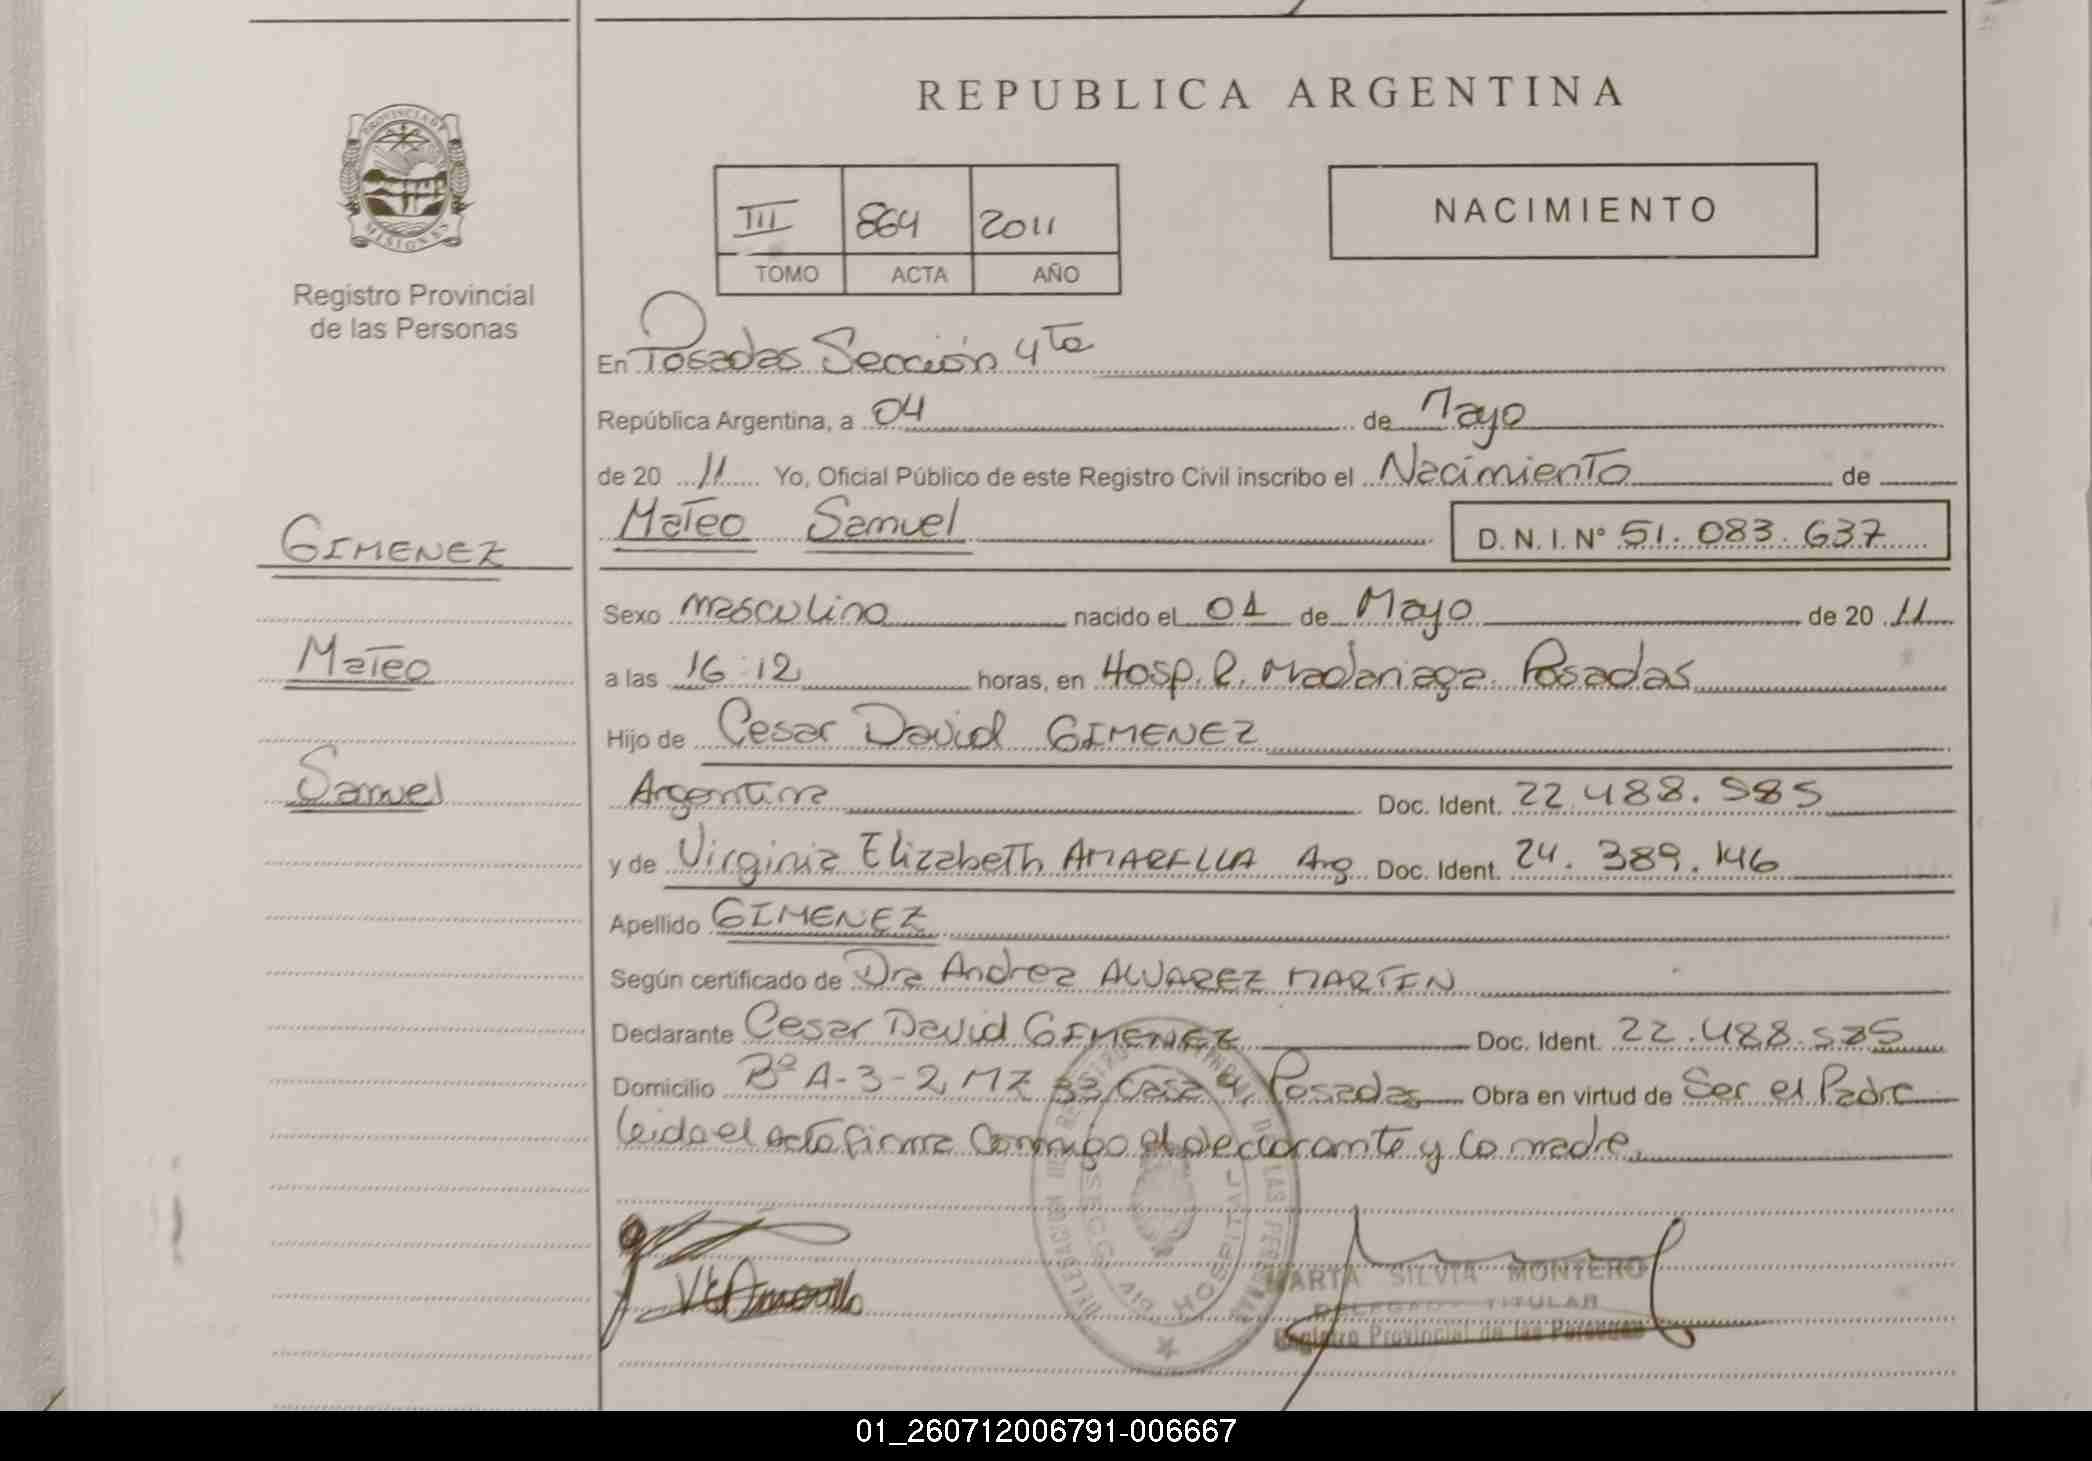 REPUBLICA ARGENTINA
PROVINCIA DE
MISIONES
Registro Provincial
de las Personas
III 864 2011
TOMO ACTA AÑO
NACIMIENTO
En Posadas Sección 4ta
República Argentina, a 04 de Mayo
de 20 11 Yo, Oficial Público de este Registro Civil inscribo el Nacimiento de
Mateo Samuel D. N. I. N° 51.083.637
GIMENEZ
Mateo
Samuel
Sexo masculino nacido el 01 de Mayo de 20 11
a las 16:12 horas, en Hosp. R. Madariaga. Posadas
Hijo de Cesar David GIMENEZ
Argentina Doc. Ident. 22.488.585
y de Virginia Elizabeth AMARELLA Arg Doc. Ident. 24.389.146
Apellido GIMENEZ
Según certificado de Dra Andrea ALVAREZ MARTIN
Declarante Cesar David GIMENEZ Doc. Ident. 22.488.585
Domicilio Bº A-3-2, MZ 33, Casa 4, Posadas Obra en virtud de Ser el Padre
leida el acta firma conmigo el declarante y la madre.
HOSPITAL
MARTA SILVIA MONTERO
DELEGADA TITULAR
Registro Provincial de las Personas
01_260712006791-006667